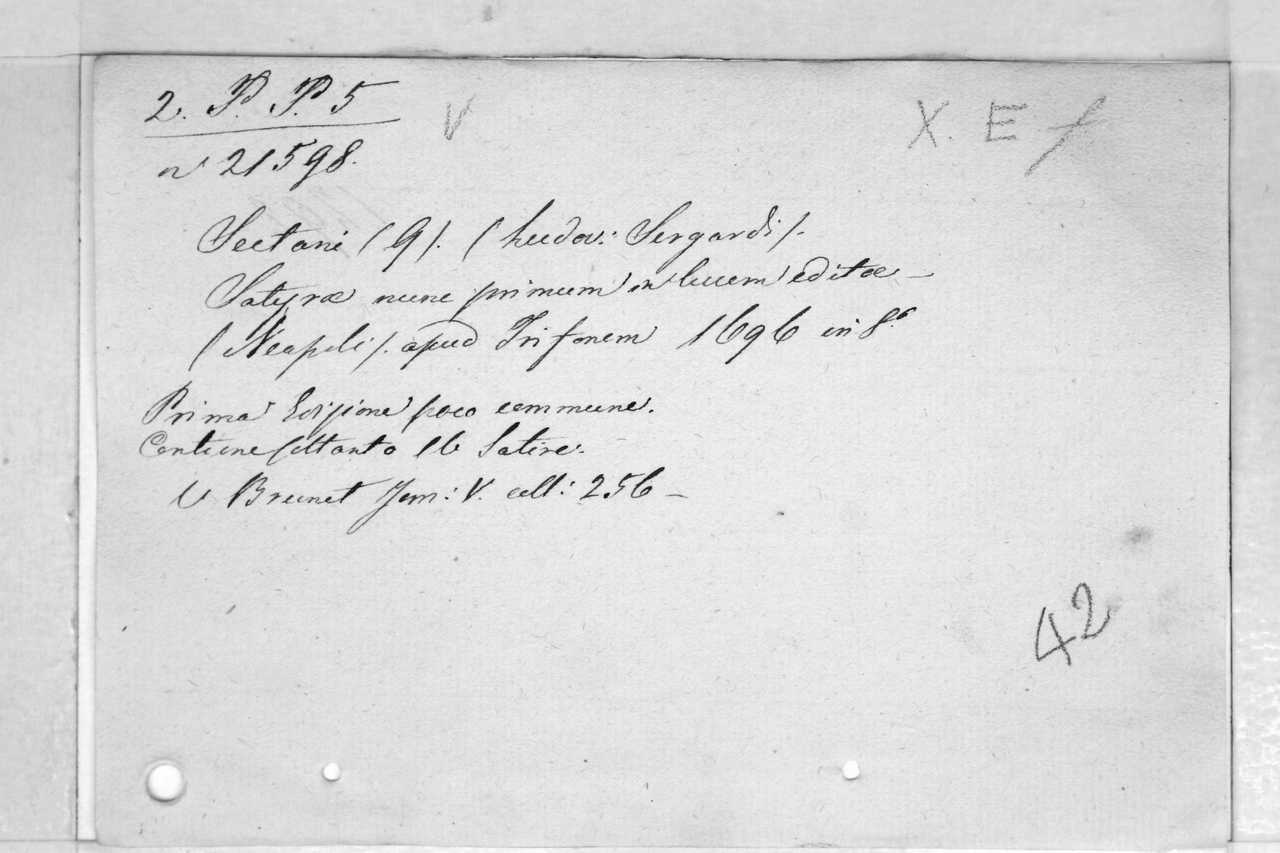 2. P. P. 5
V
X. E f
n 21598.
Sectani (Q). (Ludov: Sergardi).
Satyræ nunc primum in lucem editæ —
(Neapoli). apud Trifonem 1696 in 8.º
Prima Edizione poco commune.
Contiene soltanto 16 Satire.
V Brunet Tom: V. coll: 256 —
42